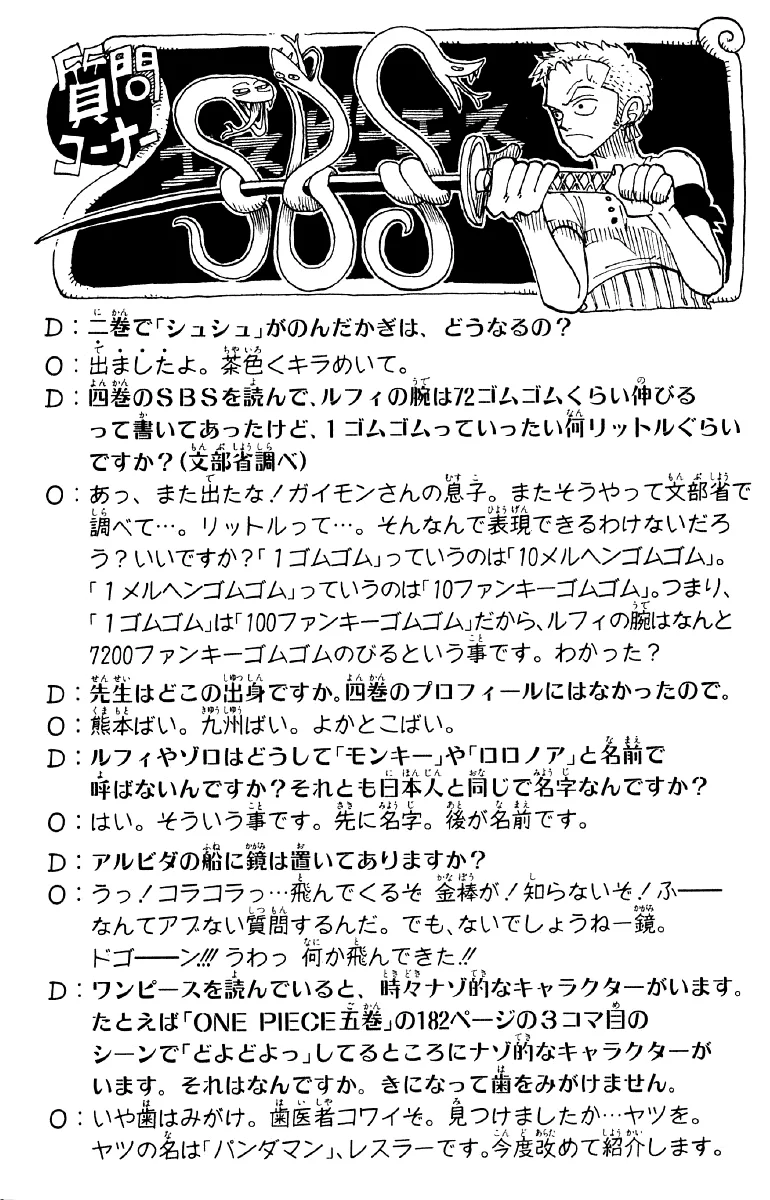 質問
コーナー
SBS
エスビーエス
D：二巻で「シュシュ」がのんだかぎは、どうなるの？
O：出ましたよ。茶色くキラめいて。
D：四巻のSBSを読んで、ルフィの腕は72ゴムゴムくらい伸びる
って書いてあったけど、1ゴムゴムっていったい何リットルぐらい
ですか？(文部省調べ)
O：あっ、また出たな！ガイモンさんの息子。またそうやって文部省で
調べて…。リットルって…。そんなんで表現できるわけないだろ
う？いいですか？「1ゴムゴム」っていうのは「10メルヘンゴムゴム」。
「1メルヘンゴムゴム」っていうのは「10ファンキーゴムゴム」。つまり、
「1ゴムゴム」は「100ファンキーゴムゴム」だから、ルフィの腕はなんと
7200ファンキーゴムゴムのびるという事です。わかった？
D：先生はどこの出身ですか。四巻のプロフィールにはなかったので。
O：熊本ばい。九州ばい。よかとこばい。
D：ルフィやゾロはどうして「モンキー」や「ロロノア」と名前で
呼ばないんですか？それとも日本人と同じで名字なんですか？
O：はい。そういう事です。先に名字。後が名前です。
D：アルビダの船に鏡は置いてありますか？
O：うっ！コラコラっ…飛んでくるぞ 金棒が！知らないぞ！ふ――
なんてアブない質問するんだ。でも、ないでしょうねー鏡。
ドゴ――ン!!! うわっ 何か飛んできた!!
D：ワンピースを読んでいると、時々ナゾ的なキャラクターがいます。
たとえば「ONE PIECE五巻」の182ページの3コマ目の
シーンで「どよどよっ」してるところにナゾ的なキャラクターが
います。それはなんですか。きになって歯をみがけません。
O：いや歯はみがけ。歯医者コワイぞ。見つけましたか…ヤツを。
ヤツの名は「パンダマン」、レスラーです。今度改めて紹介します。